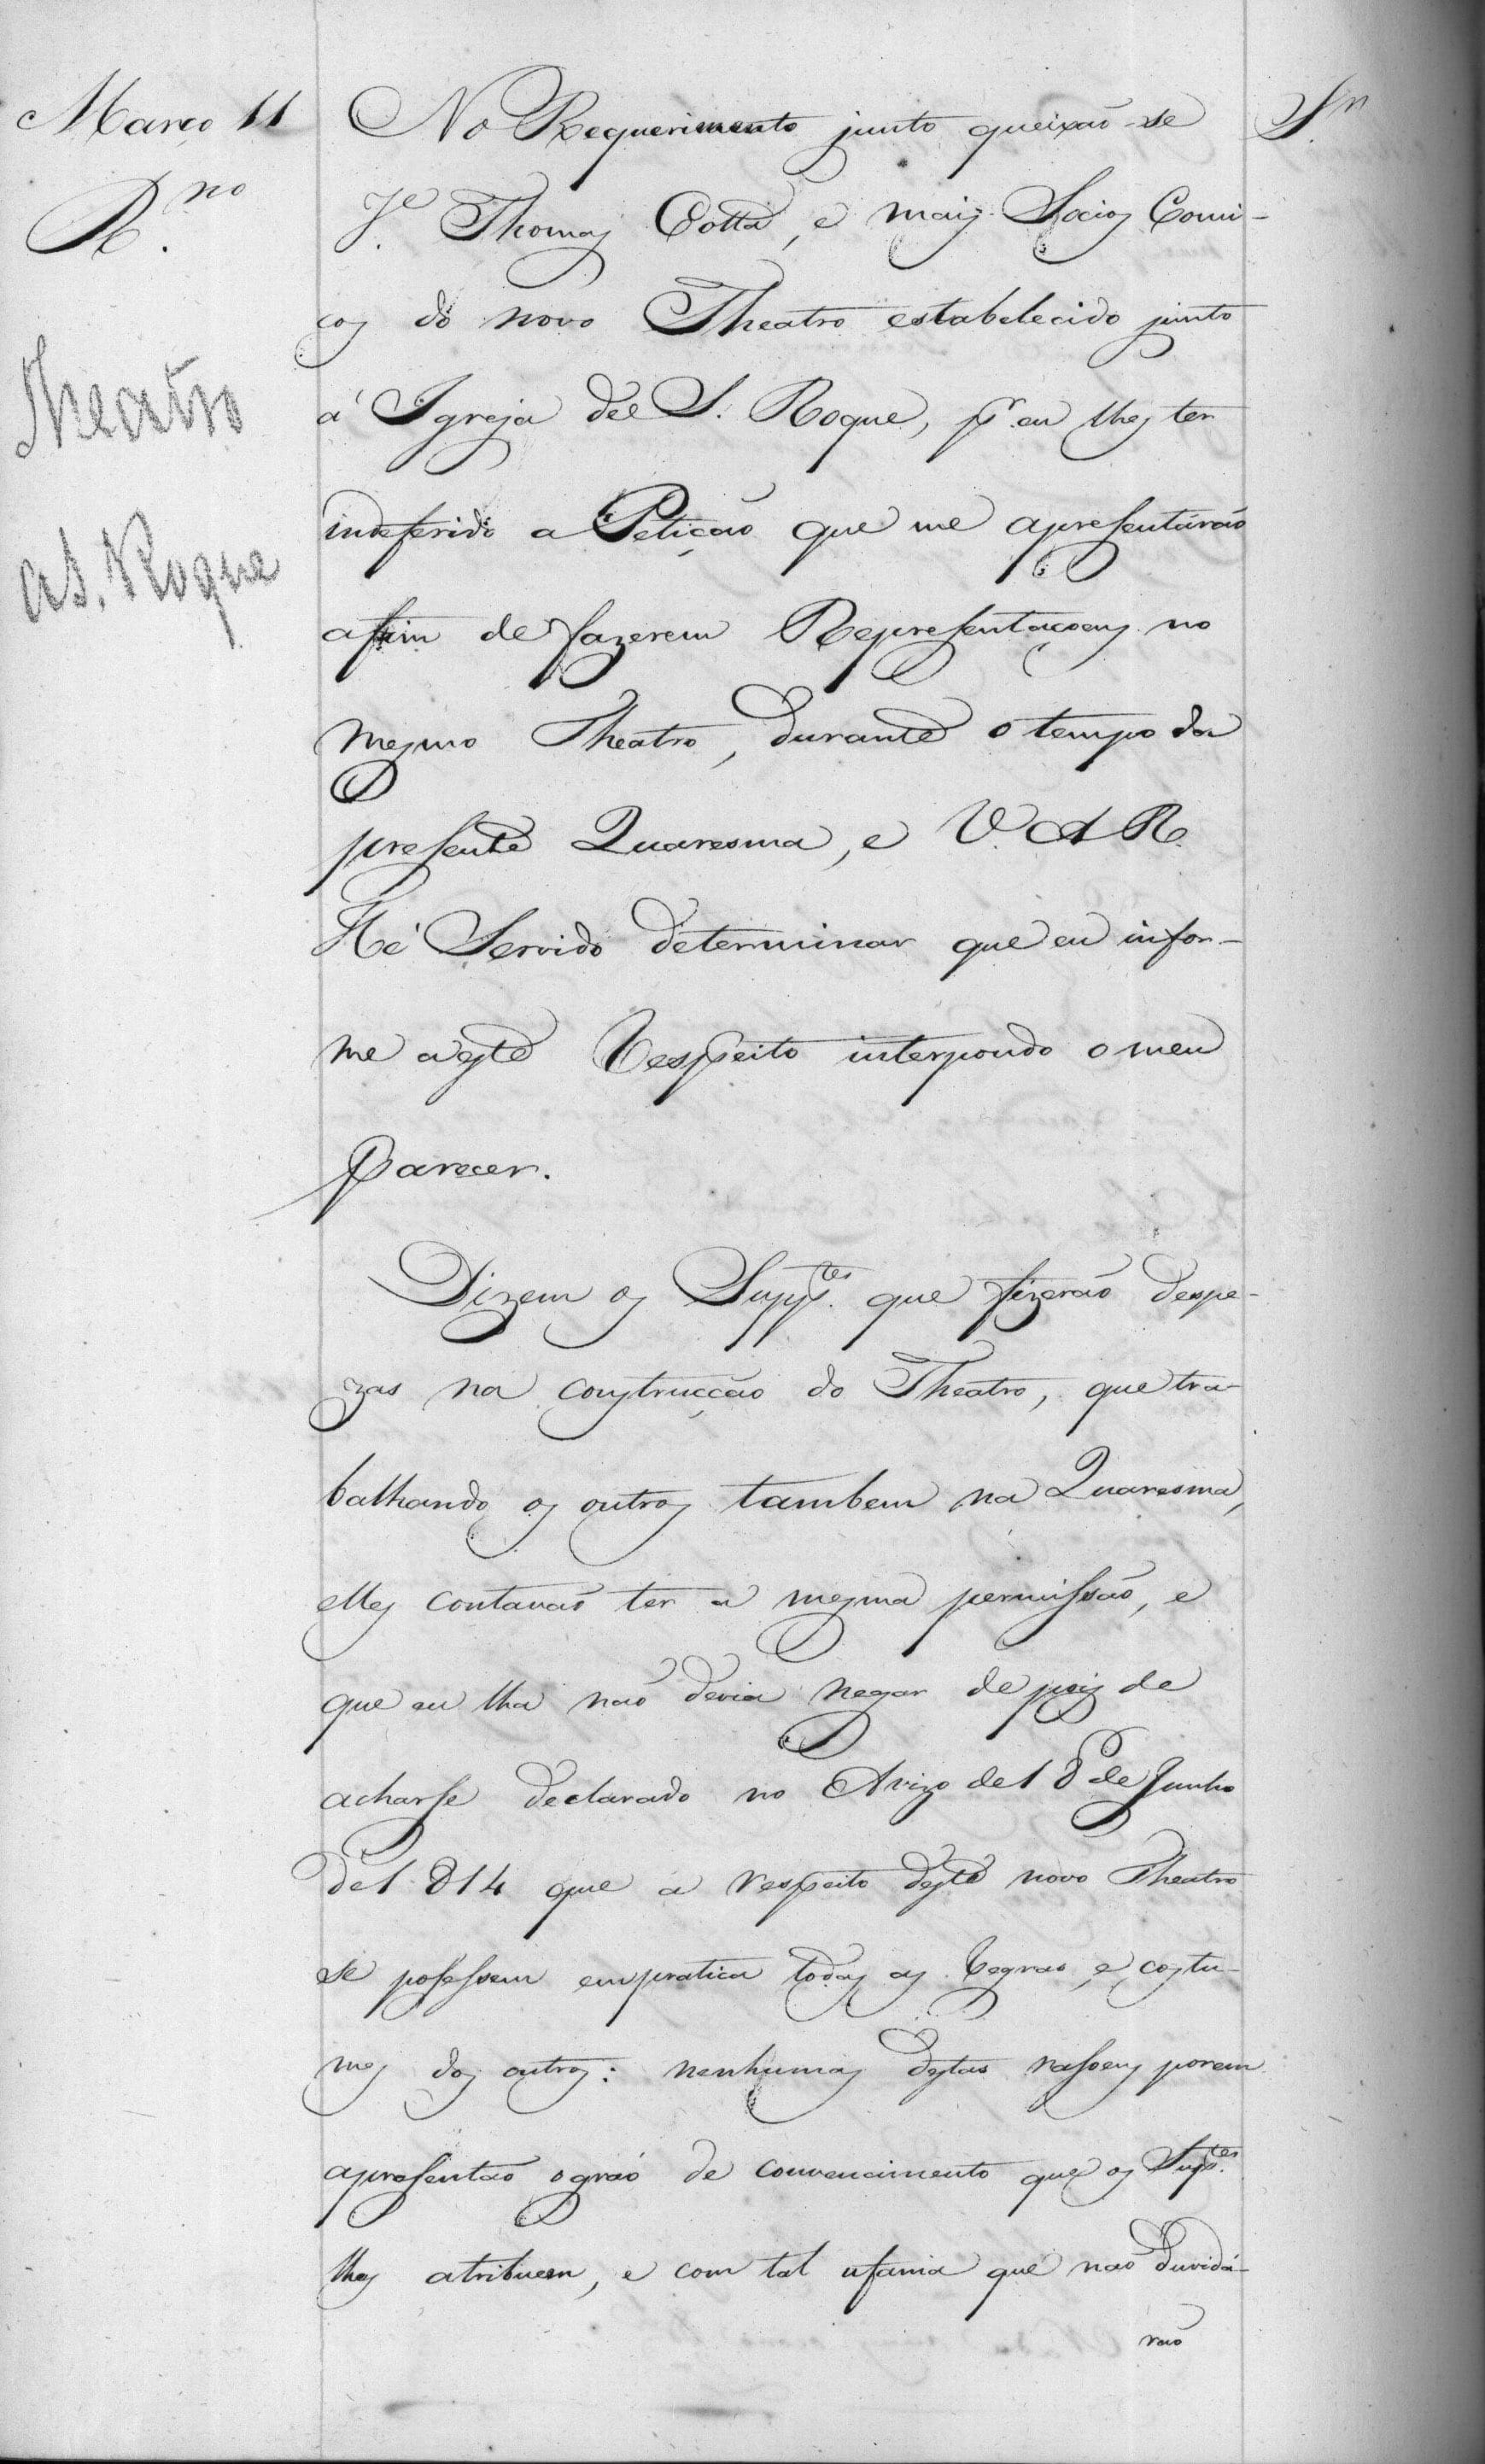 Março 11
R.no
Theatro
a S. Roque
Sr.
No Requerimento junto queixão-se
Je. Thomas Cotta, e mais Socios Comi-
cos do novo Theatro estabelecido junto
á Igreja de S. Roque, pr. eu lhes ter
indeferido a Petição que me apresentárão
afim de fazerem Representaçoens no
mesmo Theatro, durante o tempo da
presente Quaresma, e V. A R.
Hé Servido determinar que eu infor-
me a este Respeito interpondo o meu
Parecer.
Dizem os Supptes. que fizerão despe-
zas na construcção do Theatro, que tra-
balhando os outros tambem na Quaresma,
elles contavão ter a mesma permissão, e
que eu lha não devia negar depois de
acharse declarado no Avizo de 18 de Junho
de 1814 que a respeito deste novo Theatro
se posessem em pratica todas as Regras, e costu-
mes dos outros: nenhumas destas rasoens porem
apresentão o gráo de convencimento que os Suptes.
lhes atribuem, e com tal ufania que não duvidá-
rão